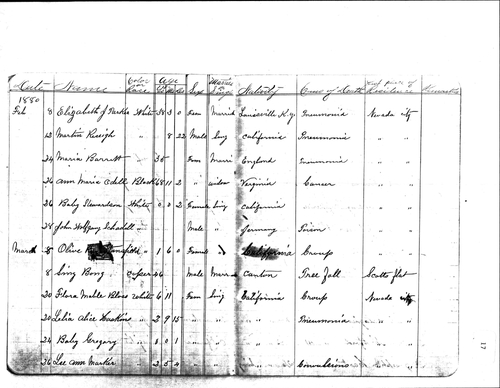 Date Name Color or Race Age Y M D Sex Married Sing Nativity Cause of Death Residence Remarks
1880
Feb 8 Elizabeth J Parks White 38 3 0 Fem Married Louisville K.y Pneumonia Nevada city
12 Martin Ruigh " 8 22 Male Sing California Pneumonia " "
24 Maria Barrett " 35 Fem Marri England Pneumonia " "
26 Ann Maria Odell Black 68 11 2 " widow Virginia Cancer " "
26 Baby Stewardson White 0 0 2 Female Sing California " "
28 John Wolfgang " Male " Germany " "
March 8 Olive " 1 6 0 Female " California Croup " "
8 Sing Bong Copper 46 Male Married Canton Tree Fell Scotts flat
20 Flora Mable White 6 11 Fem Sing California Croup Nevada city
20 Lelia Alice Haskins " 2 9 15 " " " Pneumonia " "
24 Baby Gregory " 1 0 1 " " " " "
26 Lee Ann Marker " 2 5 4 " " " Convulsions " "
17